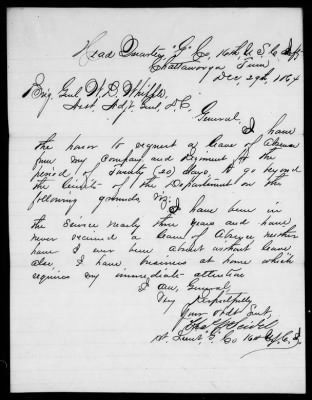 Head Quarters "G" Co, 16th U.S.C. Inft
Chattanooga Tenn
Dec 29th 1864
Brig. Genl W. D. Whipple
Asst. Adjt. Genl, D.C.
General,
I have
the honor to request a leave of Absence
from my Company and Regiment for the
period of Twenty (20) days, to go beyond
the limits of the Department on the
following grounds, Viz:
I have been in
the Service nearly three years and have
never received a leave of Absence neither
have I ever been absent without leave
also I have business at home which
requires my immediate attention
I am, General,
Very Respectfully
Your obdt Servt,
1st Lieut. G. Co 16th